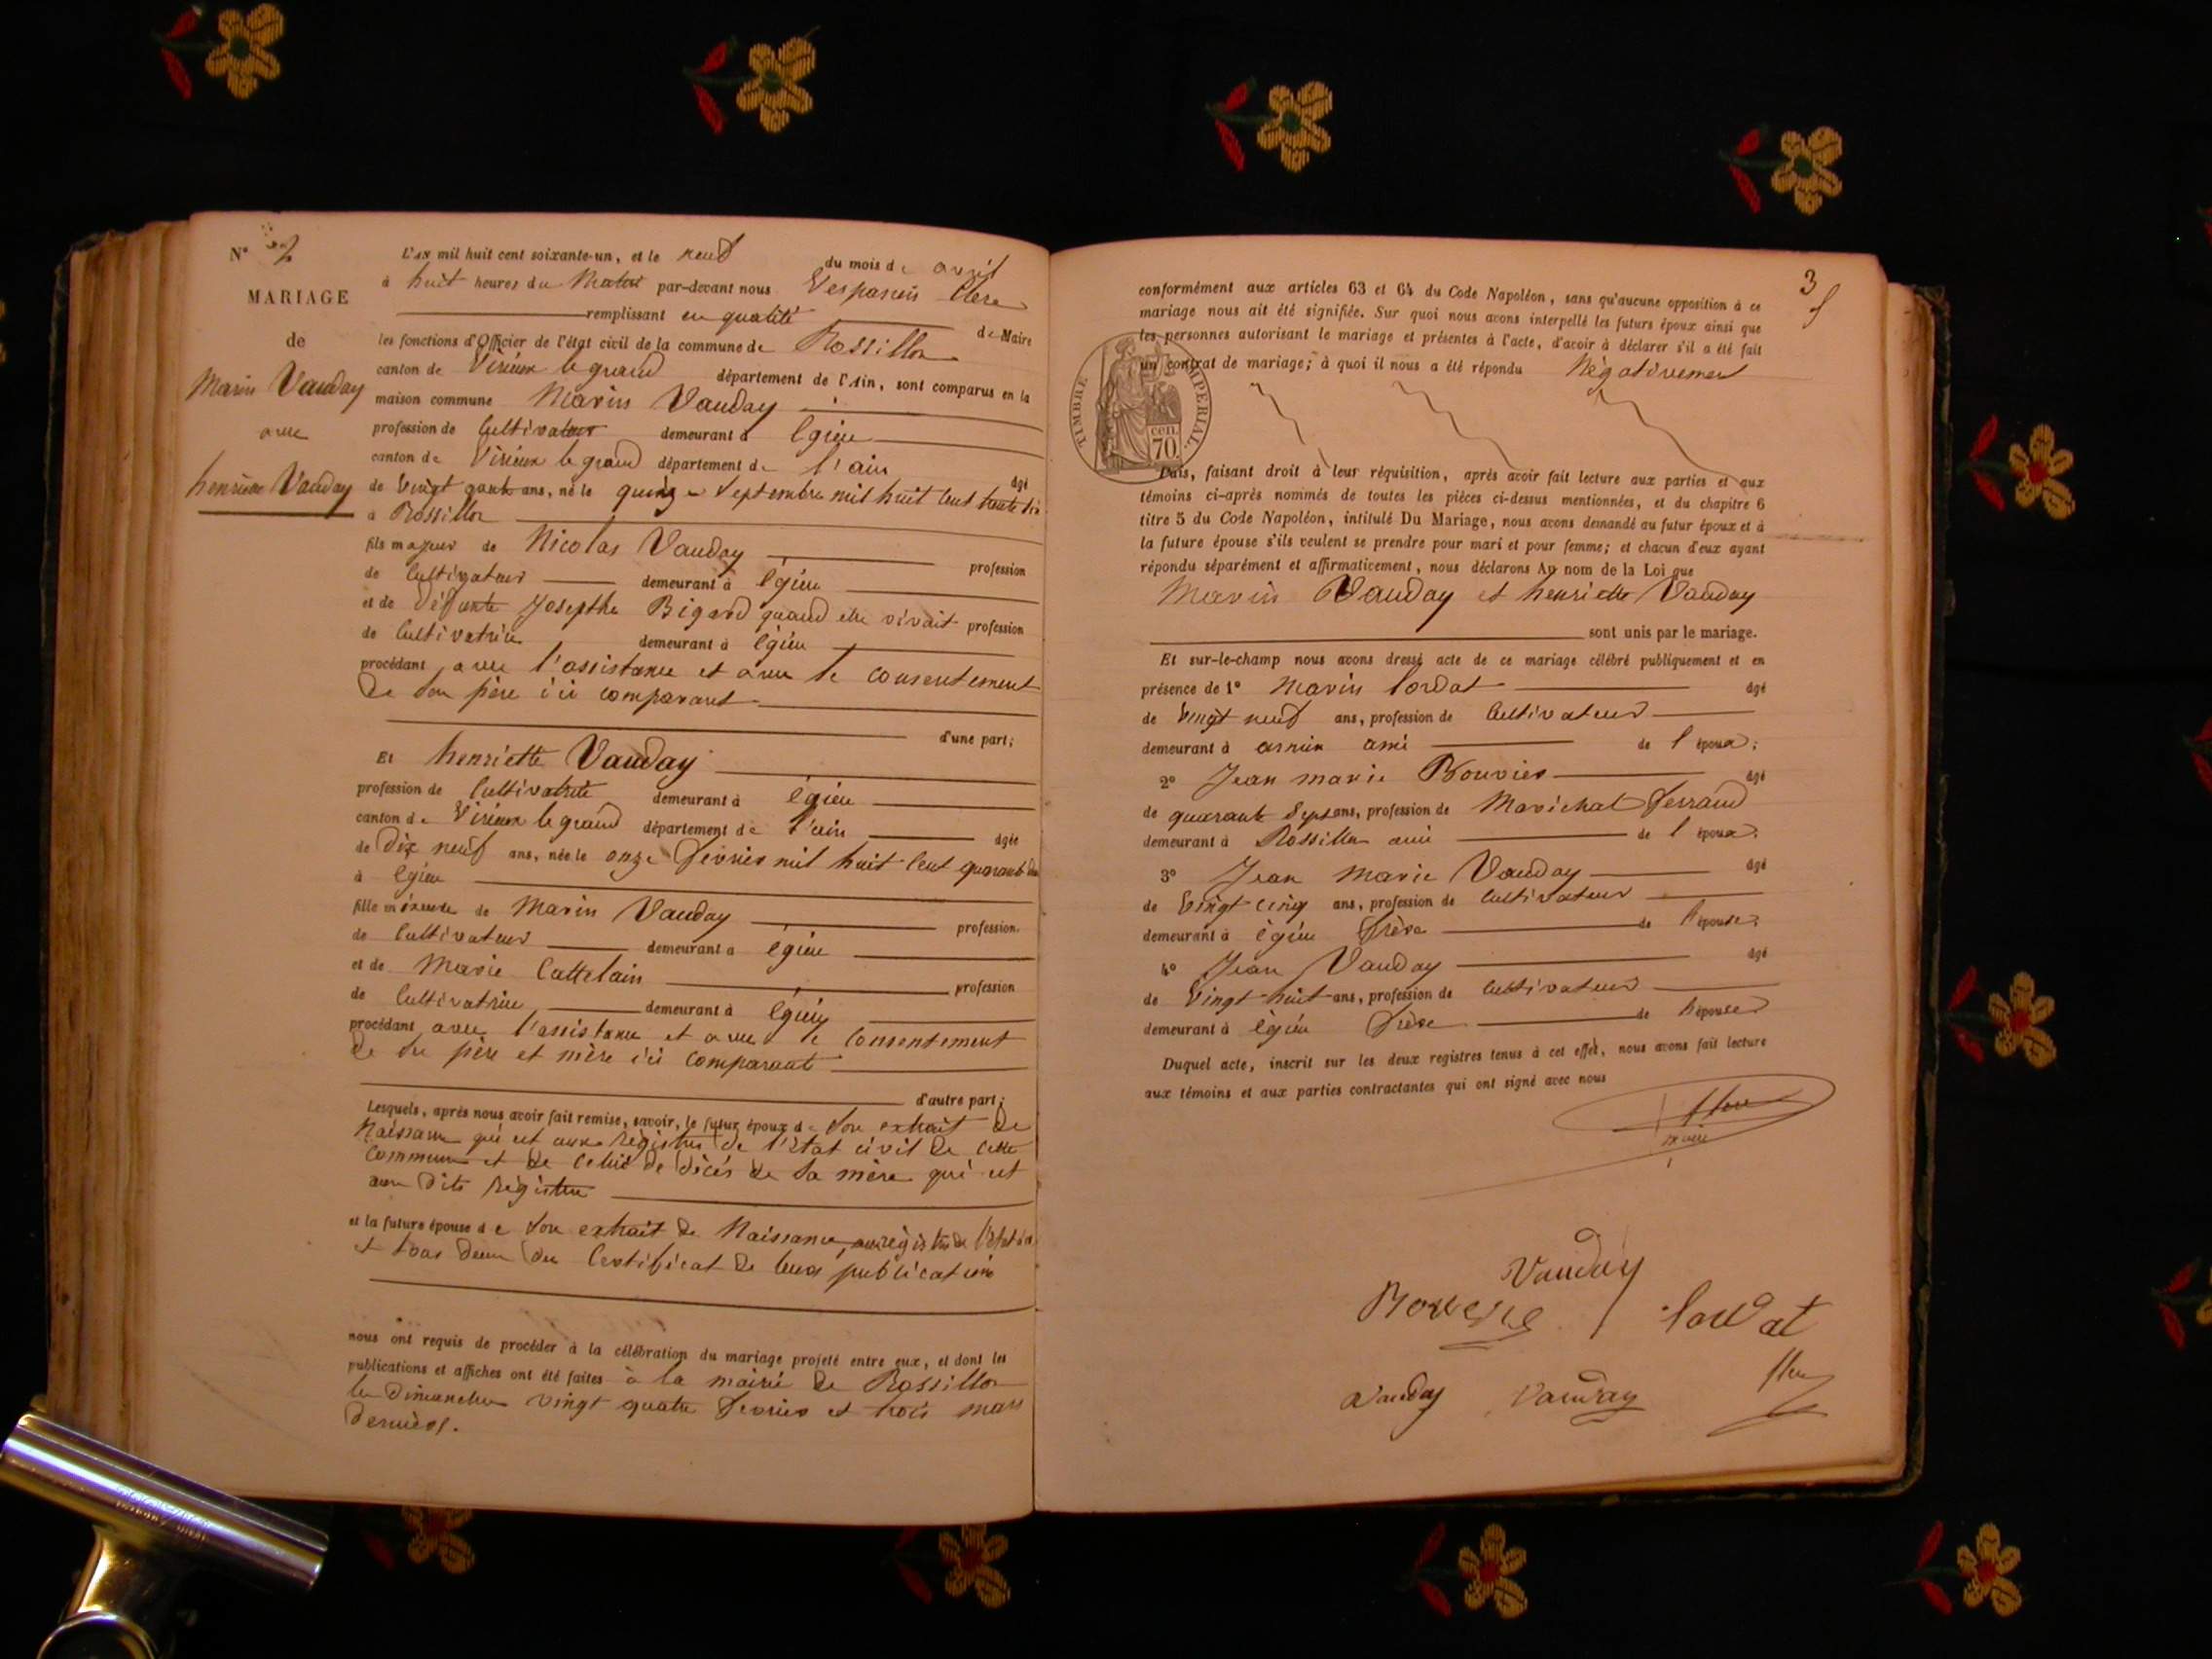 N° 2
MARIAGE
de
Marin Vauday
avec
henriette Vauday
L'AN mil huit cent soixante-un, et le neuf du mois de avril
à huit heures du Matin par-devant nous Vespasien Clerc
remplissant en qualité de Maire
les fonctions d'Officier de l'état civil de la commune de Rossillon
canton de Virieux le grand département de l'Ain, sont comparus en la
maison commune Marin Vauday
profession de Cultivateur demeurant à Egieu
canton de Virieux le grand département de l'ain âgé
de vingt quatre ans, né le quinze Septembre mil huit Cent trente six
à Rossillon
fils majeur de Nicolas Vauday profession
de Cultivateur demeurant à Egieu
et de défunte Josephte Bigard quand elle vivait profession
de Cultivatrice demeurant à égieu
procédant avec l'assistance et avec le consentement
de son père ici comparant
d'une part;
Et henriette Vauday
profession de Cultivatrice demeurant à égieu
canton de Virieux le grand département de l'ain âgée
de dix neuf ans, née le onze fevrier mil huit Cent quarante deux
à égieu
fille mineure de Marin Vauday profession
de Cultivateur demeurant à égieu
et de Marie Cattelain profession
de Cultivatrice demeurant à Egieu
procédant avec l'assistance et avec le Consentement
de ses père et mère ici comparant
d'autre part;
Lesquels, après nous avoir fait remise, savoir, le futur époux de Son extrait de
Naissance qui est aux registres de l'état civil de cette
Commune et de Celui de décès de Sa mère qui est
aux dits registres
et la future épouse de Son extrait de Naissance, aux registres de l'état civil
et tous deux du Certificat de leurs publications
nous ont requis de procéder à la célébration du mariage projeté entre eux, et dont les
publications et affiches ont été faites à la mairie de Rossillon
les dimanches vingt quatre fevrier et trois mars
derniers.
3
conformément aux articles 63 et 64 du Code Napoléon, sans qu'aucune opposition à ce
mariage nous ait été signifiée. Sur quoi nous avons interpellé les futurs époux ainsi que
les personnes autorisant le mariage et présentes à l'acte, d'avoir à déclarer s'il a été fait
un contrat de mariage; à quoi il nous a été répondu Négativement
TIMBRE IMPERIAL
70 cen.
Puis, faisant droit à leur réquisition, après avoir fait lecture aux parties et aux
témoins ci-après nommés de toutes les pièces ci-dessus mentionnées, et du chapitre 6
titre 5 du Code Napoléon, intitulé Du Mariage, nous avons demandé au futur époux et à
la future épouse s'ils veulent se prendre pour mari et pour femme; et chacun d'eux ayant
répondu séparément et affirmativement, nous déclarons Au nom de la Loi que
Marin Vauday et henriette Vauday
sont unis par le mariage.
Et sur-le-champ nous avons dressé acte de ce mariage célébré publiquement et en
présence de 1° Marin Cordat âgé
de vingt neuf ans, profession de Cultivateur
demeurant à ami de l'époux;
2° Jean marie Bouvier âgé
de quarante Sept ans, profession de Marichal ferrand
demeurant à Rossillon ami de l'époux;
3° Jean Marie Vauday âgé
de Vingt cinq ans, profession de Cultivateur
demeurant à égieu frère de l'épouse;
4° Jean Vauday âgé
de Vingt huit ans, profession de Cultivateur
demeurant à égieu frère de l'épouse
Duquel acte, inscrit sur les deux registres tenus à cet effet, nous avons fait lecture
aux témoins et aux parties contractantes qui ont signé avec nous
Clerc
maire
Vauday
Cordat
Vauday Vauday Clerc